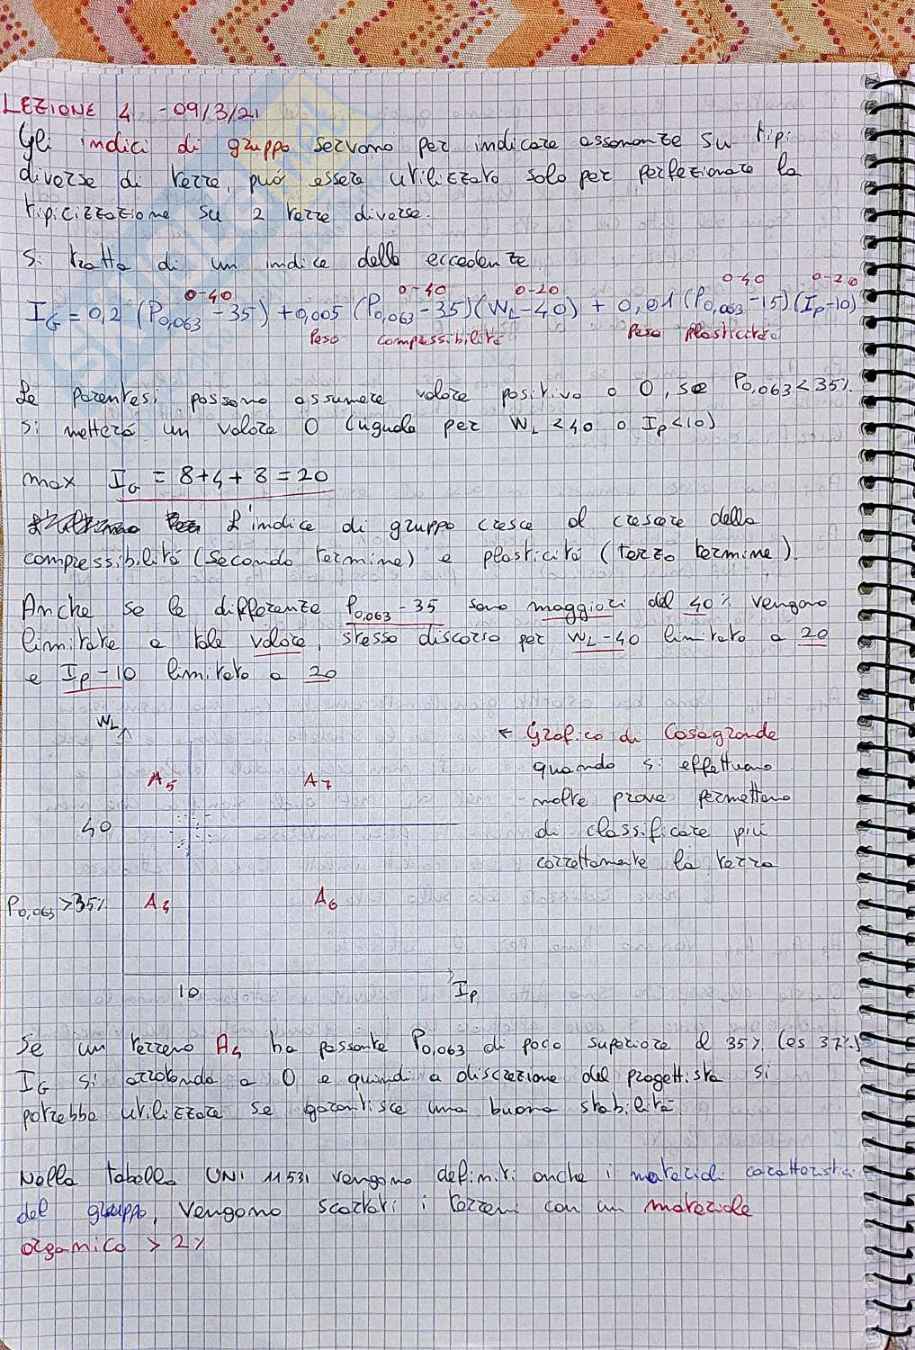 LEZIONE 4 - 09/3/21
Gli indici di gruppo servono per indicare assonanze su tipi
diverse di terre, può essere utilizzato solo per perfezionare la
tipicizzazione su 2 terre diverse.
Si tratta di un indice delle eccedenze
0-40 0-40 0-20 0-40 0-20
I_G = 0,2 (P_0,063 - 35) + 0,005 (P_0,063 - 35)(W_L - 40) + 0,01 (P_0,063 - 15)(I_P - 10)
Peso compressibilità Peso plasticità
Le parentesi possono assumere valore positivo o 0, se P_0,063 < 35%
si metterà un valore 0 (uguale per W_L < 40 o I_P < 10)
max I_G = 8+4+8 = 20
L'indice di gruppo cresce al crescere della
compressibilità (secondo termine) e plasticità (terzo termine).
Anche se le differenze P_0,063 - 35 sono maggiori del 40% vengono
limitate a tale valore, stesso discorso per W_L - 40 limitato a 20
e I_P - 10 limitato a 20
W_L
← Grafico di Casagrande
quando si effettuano
molte prove permettono
di classificare più
correttamente la terra
A5 A7
40
P_0,063 > 35% A4 A6
10 I_P
Se un terreno A4 ha passante P_0,063 di poco superiore al 35% (es 37%)
I_G si arrotonda a 0 e quindi a discrezione del progettista si
potrebbe utilizzare se garantisce una buona stabilità
Nella tabella UNI 11531 vengono definiti anche i materiali caratteristici
del gruppo, vengono scartati i terreni con un materiale
organico > 2%